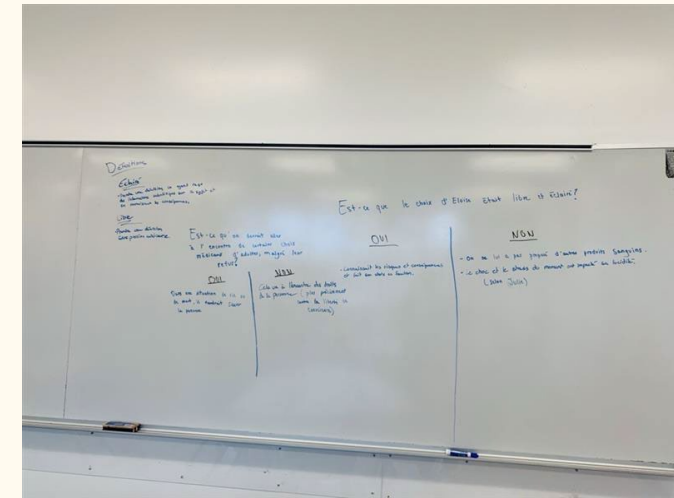 Définitions
Éclairé
-Prendre une décision en ayant reçu
des informations scientifiques sur le sujet et
en connaissant les conséquences.
Libre
-Prendre une décision
sans pression extérieure.
Est-ce qu'on devrait aller
à l'encontre de certains choix
médicaux d'adultes, malgré leur
refus?
OUI
Dans une situation de vie ou
de mort, il faudrait sauver
la personne
NON
Cela va à l'encontre des droits
de la personne (plus précisément
contre la liberté de
conscience)
Est-ce que le choix d'Eloise était libre et éclairé?
OUI
- Connaissait les risques et conséquences
et fait son choix en fonction.
NON
- On ne lui a pas proposé d'autres produits sanguins.
- Le choc et le stress du moment ont impacté sa lucidité
(selon Julie)